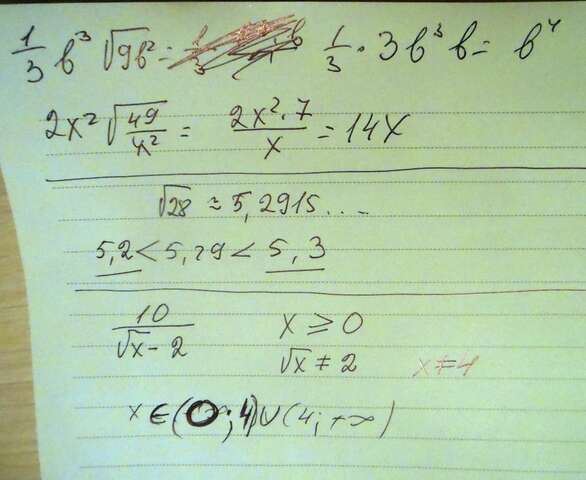 1/3 b³ √9b² = 1/3 · 3b³b = b⁴
2x² √49/x² = 2x²·7/x = 14x
√28 ≈ 5,2915...
5,2 < 5,29 < 5,3
10/√x - 2 x ≥ 0
√x ≠ 2 x ≠ 4
x ∈ (0; 4) ∪ (4; +∞)